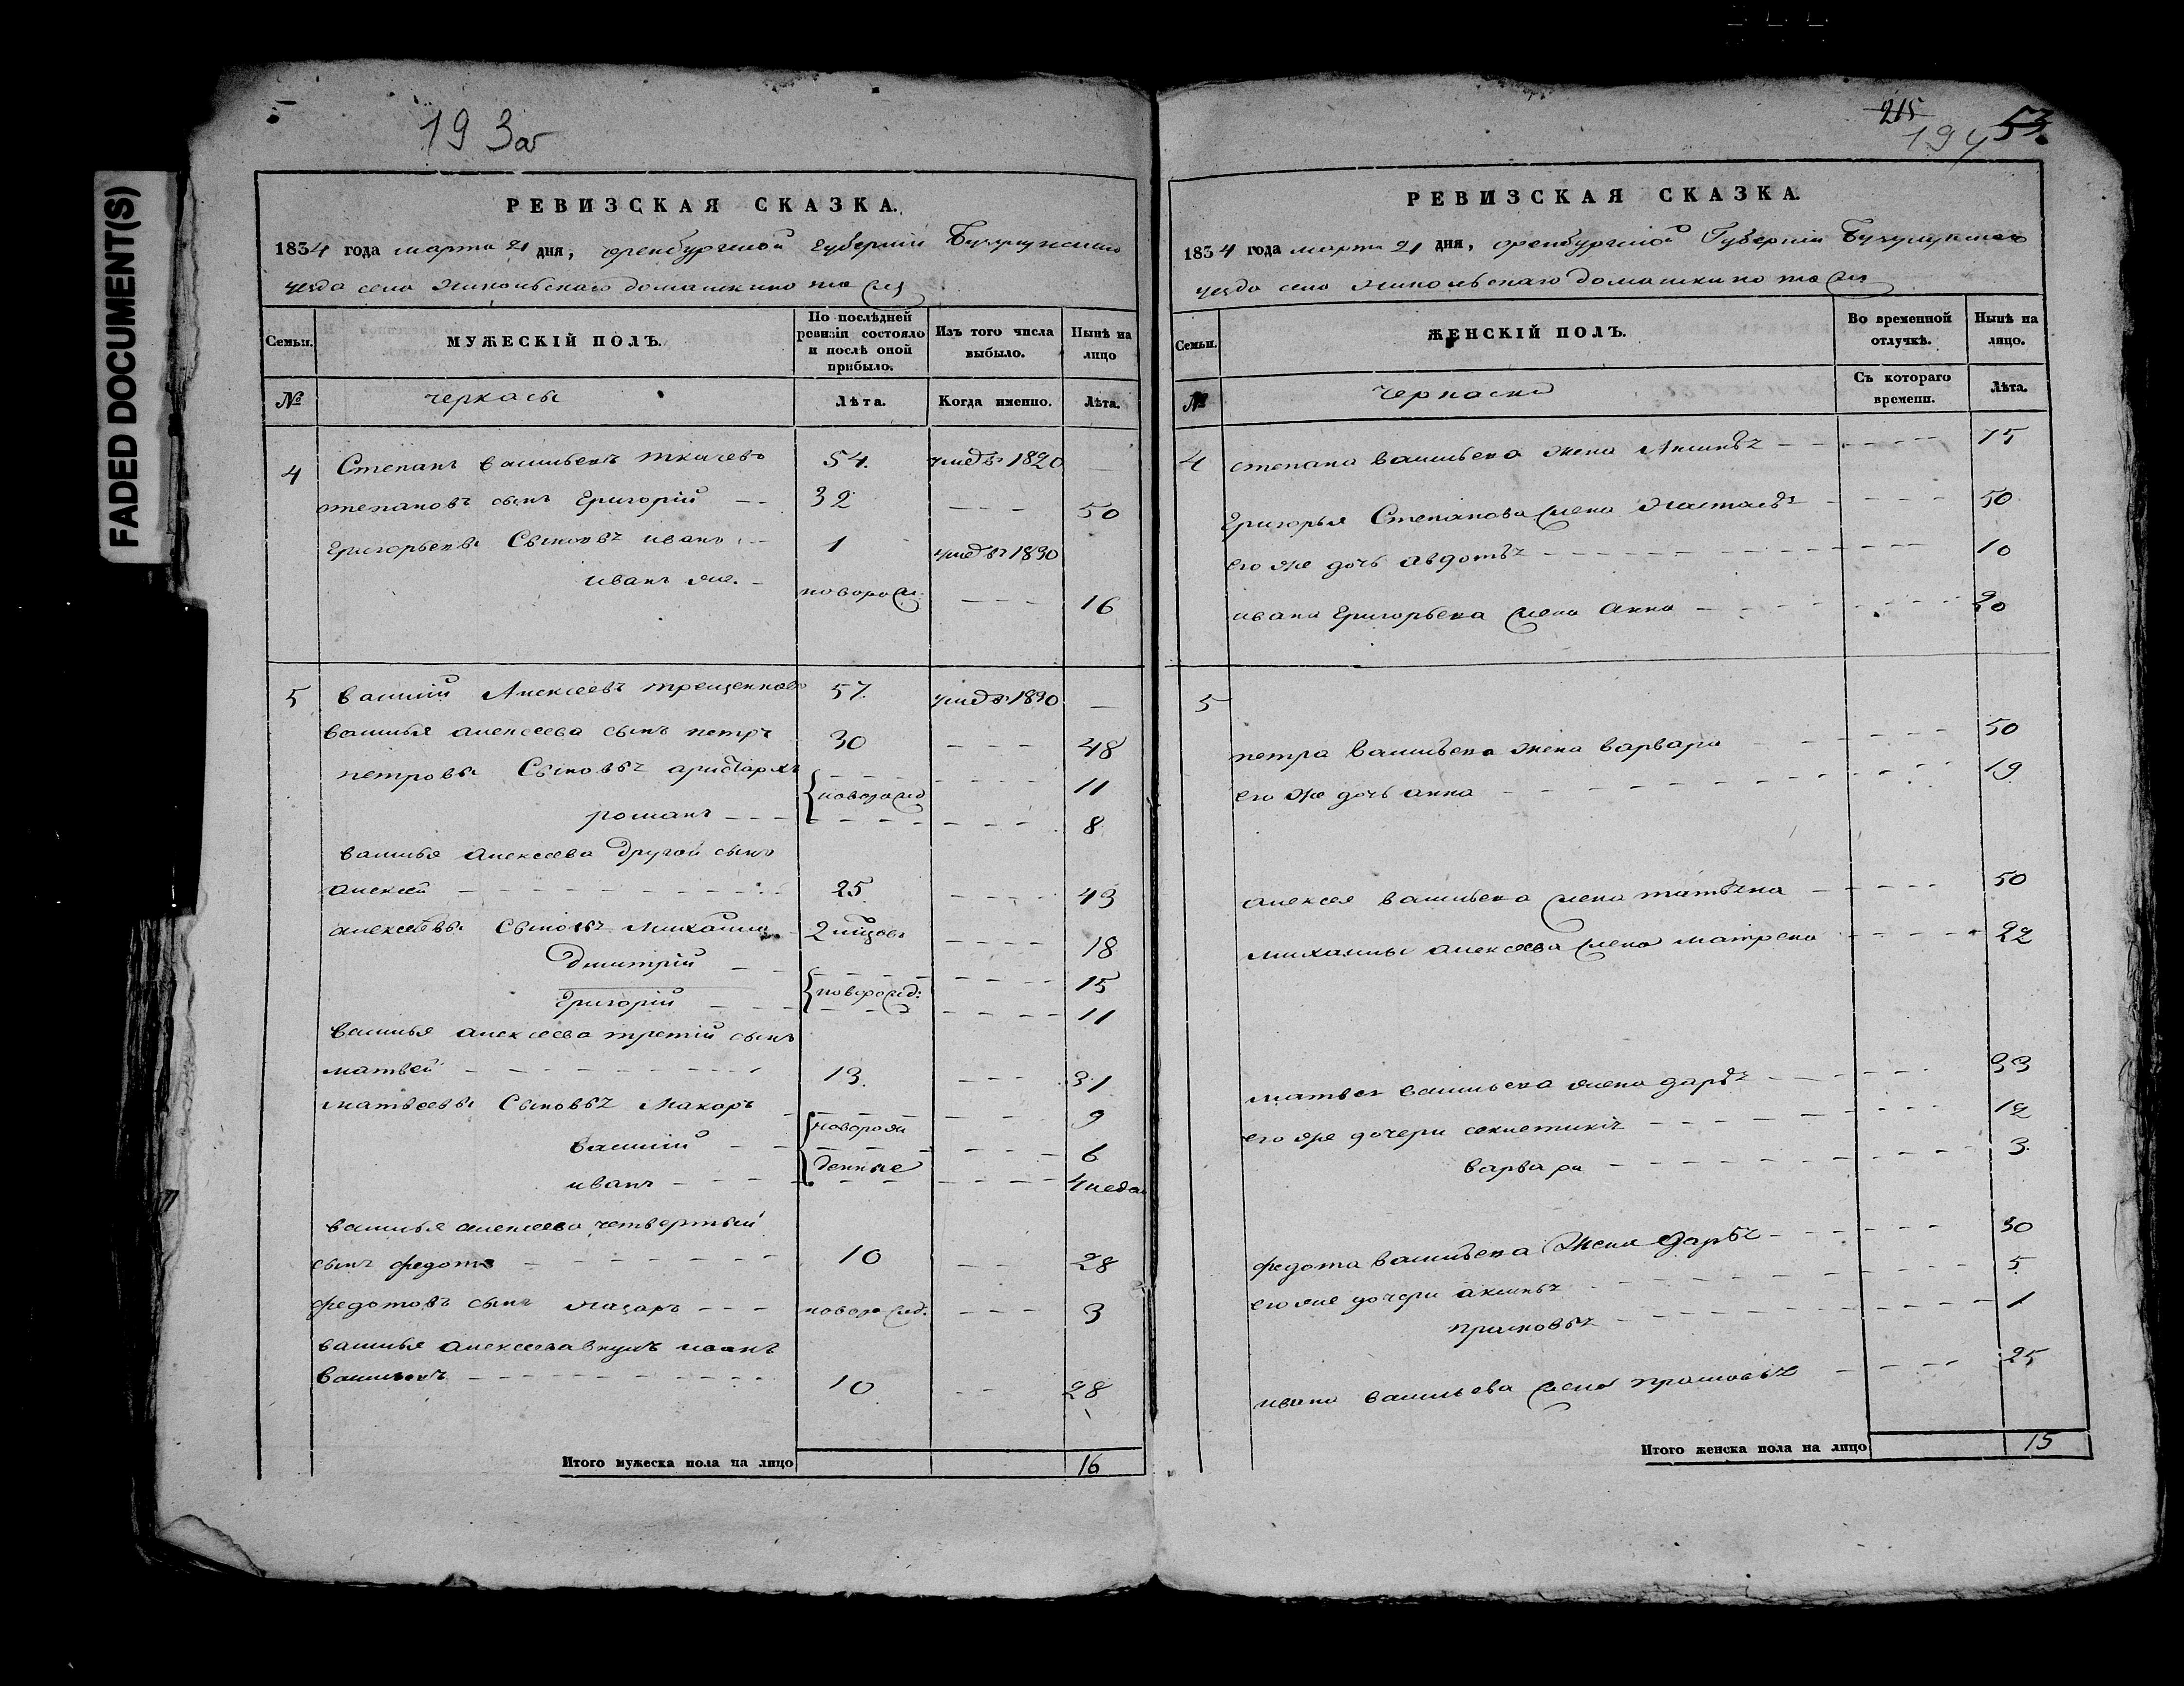 FADED DOCUMENT(S)
193об
РЕВИЗСКАЯ СКАЗКА.
1834 года марта 21 дня, оренбургской губернии Бузулукскаго
уезда села Никольскаго домашкино то ж
Семьи.
МУЖЕСКІЙ ПОЛЪ.
По послѣдней ревизіи состояло и послѣ оной прибыло.
Изъ того числа выбыло.
Нынѣ на лицо
№
черкасы
Лѣта.
Когда именно.
Лѣта.
4 Степанъ васильевъ ткачевъ 54. умеръ 1820 —
степановъ сынъ григорій 32 50
григорьевы сыновья иванъ 1 умеръ 1830
иванъ же. 16
5 василій Алексеевъ 57. умеръ 1830 —
василья алексеева сынъ петръ 30 48
петровы сыновья аристархъ 11
романъ 8
василья алексеева другой сынъ
алексей 25. 43
алексеевы сыновья михаила 18
Дмитрій 15
григорій 11
василья алексеева третій сынъ
матвей 13. 31
матвеевы сыновья Макаръ новорож 9
василій денные 6
иванъ 4 недел
василья алексеева четвертый
сынъ федотъ 10 28
федотовъ сынъ назаръ 3
василья алексеева внукъ иванъ
васильевъ 10 28
Итого мужеска пола на лицо 16
215
194 53.
РЕВИЗСКАЯ СКАЗКА.
1834 года марта 21 дня, оренбургской Губерніи Бузулукскаго
уезда села Никольскаго домашкино то ж
Семьи.
ЖЕНСКІЙ ПОЛЪ.
Во временной отлучкѣ.
Нынѣ на лицо.
№
черкаски
Съ котораго времени.
Лѣта.
4 степана васильева жена Аксинья 75
григорья Степанова жена Настасья 50
его же дочь авдотья 10
ивана григорьева жена анна 20
5
петра васильева жена варвара 50
его же дочь анна 19
алексея васильева жена татьяна 50
михаилы алексеева жена матрена 22
матвея васильева жена дарья 33
его же дочери 12
варвара 3.
федота васильева жена дарья 30
его же дочери аксинья 5.
прасковья 1
ивана васильева жена прасковья 25
Итого женска пола на лицо 15